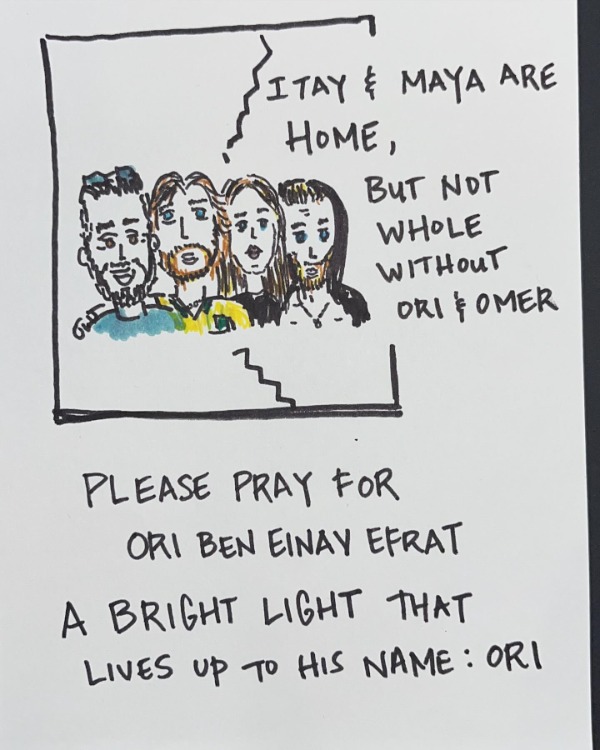 ITAY & MAYA ARE
HOME,
BUT NOT
WHOLE
WITHOUT
ORI & OMER
PLEASE PRAY FOR
ORI BEN EINAV EFRAT
A BRIGHT LIGHT THAT
LIVES UP TO HIS NAME: ORI